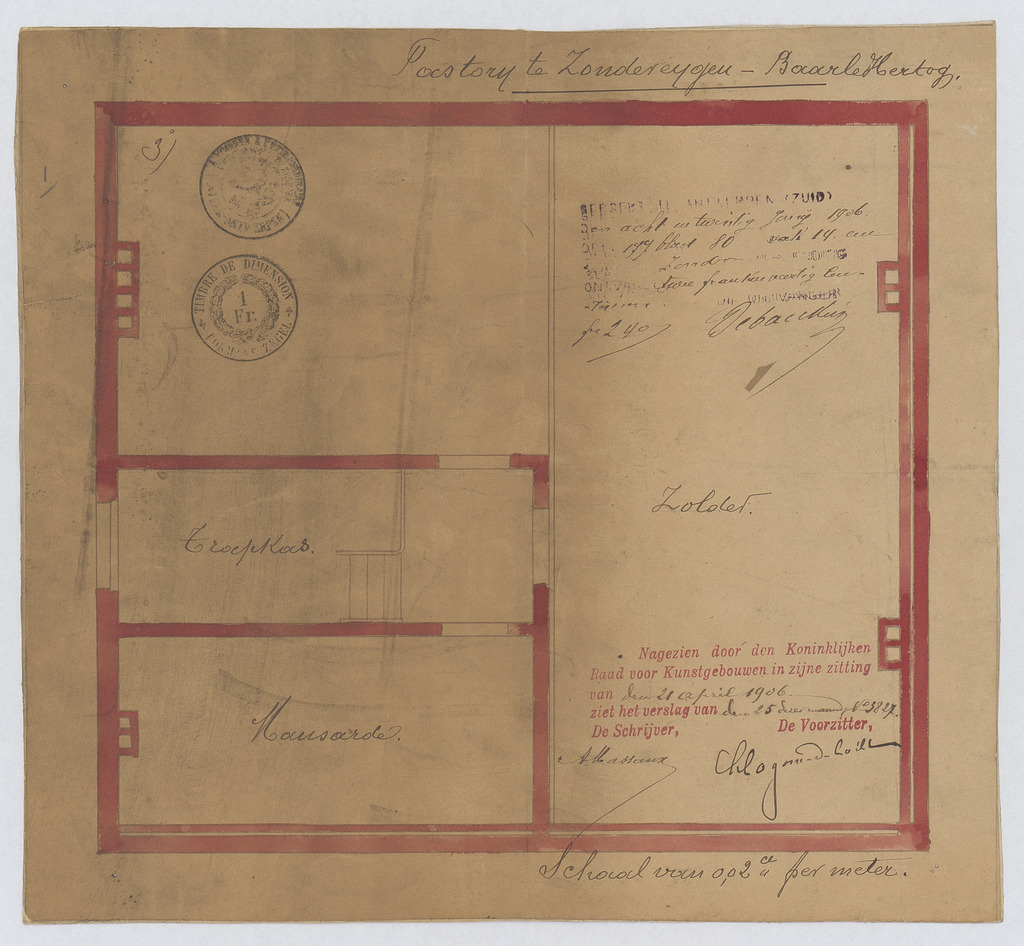 Pastory te Zondereygen – Baarle Hertog.
3)
ANTWERPEN
TIMBRE DE DIMENSION
1
Fr.
FORMAAT ZEGEL
ANTWERPEN (ZUID)
den acht en twintig Juny 1906.
177 blad 80 vak 14. een
Zonder
twee franken veertig cen-
tiemen.
DE ONTVANGER
fr 2.40
Zolder.
Trapkas.
Mansarde.
Nagezien door den Koninklijken
Raad voor Kunstgebouwen in zijne zitting
van den 21 april 1906
ziet het verslag van den 25 dezer maand, No 3827.
De Schrijver, De Voorzitter,
AMassaux
Schaal van 0,02 cM per meter.